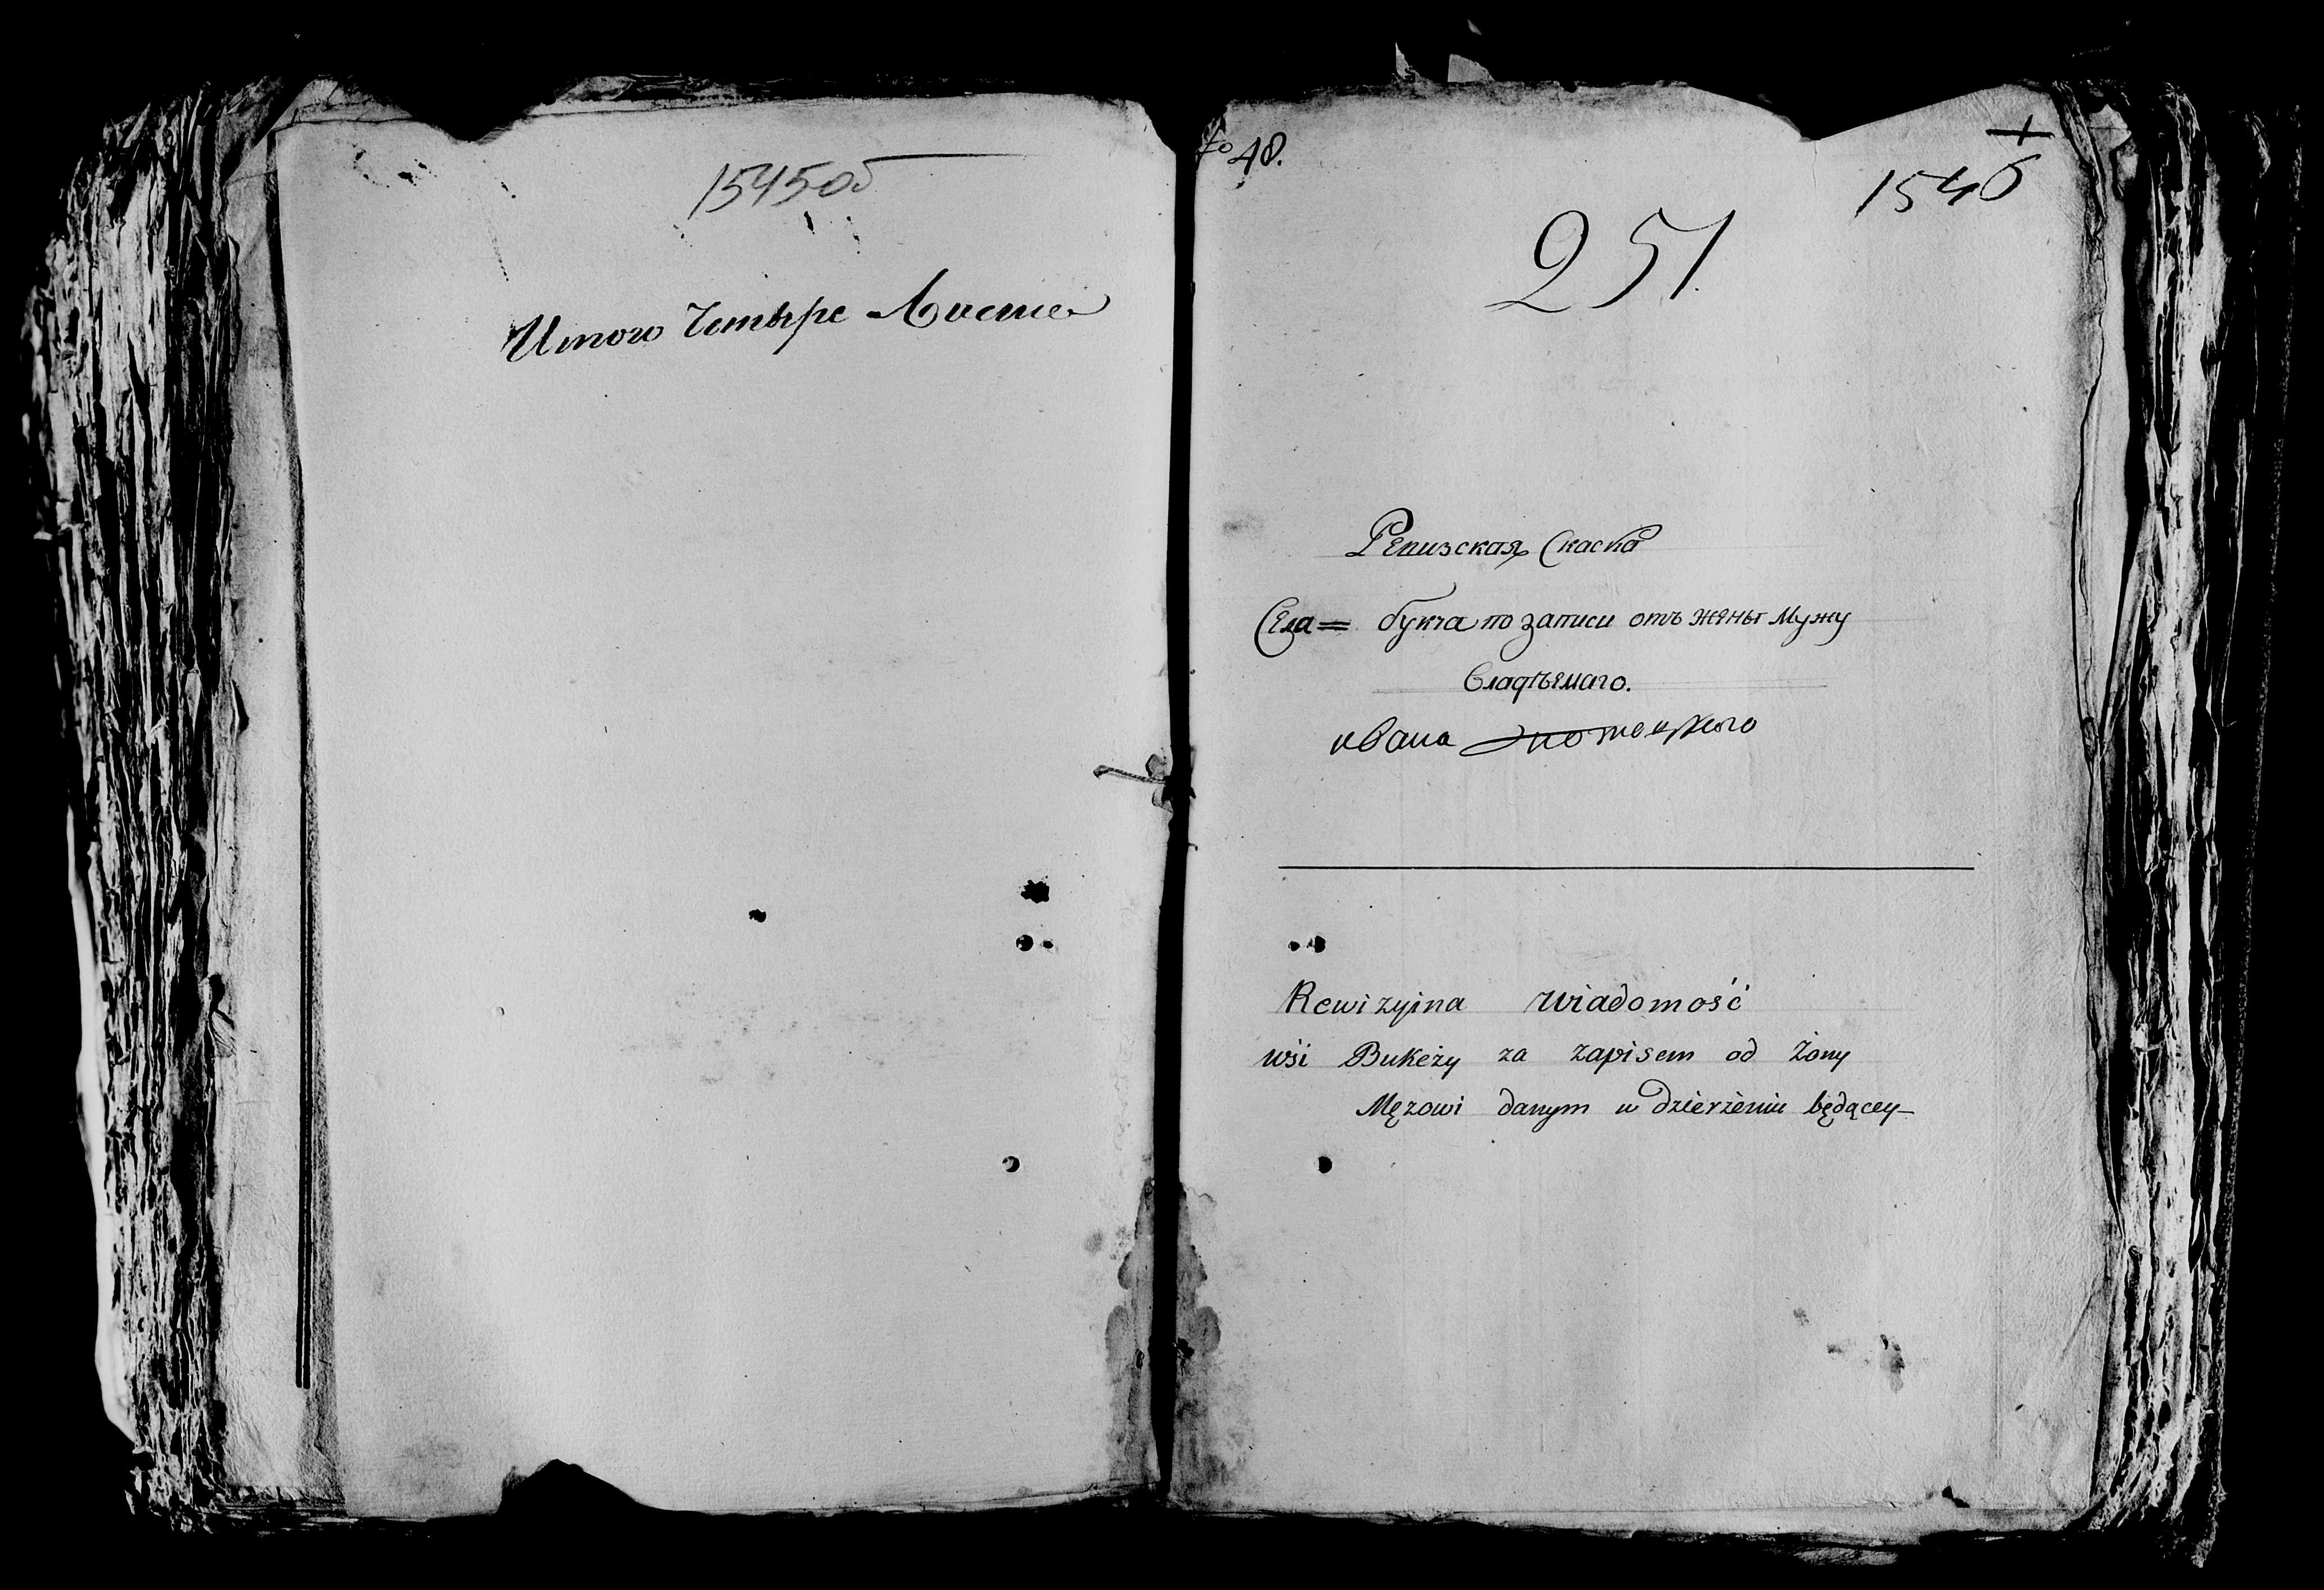 1545об
Итого Четыре Листа
48.
1546
251.
Ревизская Скаска
Села= букча по записи отъ жены мужу
владѣемаго.
ивана
Rewizyjna wiadomość
wśi Bukeży za zapisem od Żony
Mężowi danym w dzierżeniu będącey